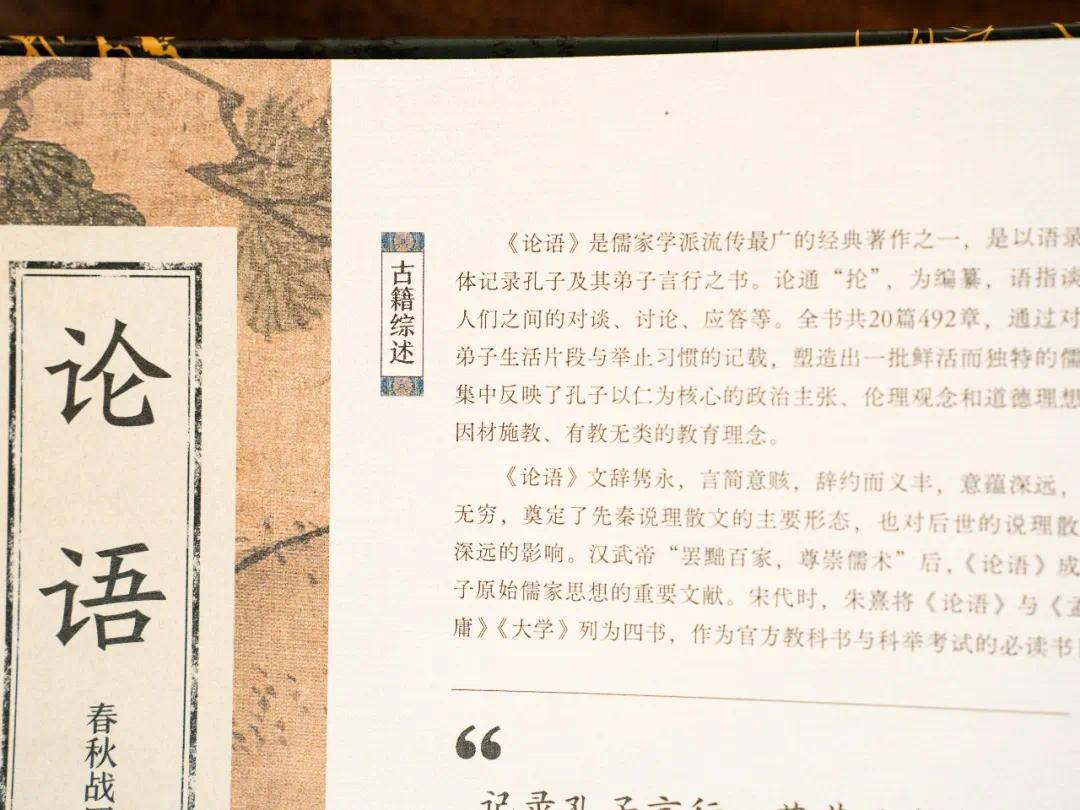 论语
春秋战
古籍综述
《论语》是儒家学派流传最广的经典著作之一，是以语录
体记录孔子及其弟子言行之书。论通“抡”，为编纂，语指谈
人们之间的对谈、讨论、应答等。全书共20篇492章，通过对
弟子生活片段与举止习惯的记载，塑造出一批鲜活而独特的儒
集中反映了孔子以仁为核心的政治主张、伦理观念和道德理想
因材施教、有教无类的教育理念。
《论语》文辞隽永，言简意赅，辞约而义丰，意蕴深远，
无穷，奠定了先秦说理散文的主要形态，也对后世的说理散
深远的影响。汉武帝“罢黜百家，尊崇儒术”后，《论语》成
子原始儒家思想的重要文献。宋代时，朱熹将《论语》与《孟
庸》《大学》列为四书，作为官方教科书与科举考试的必读书
“
记录孔子言行